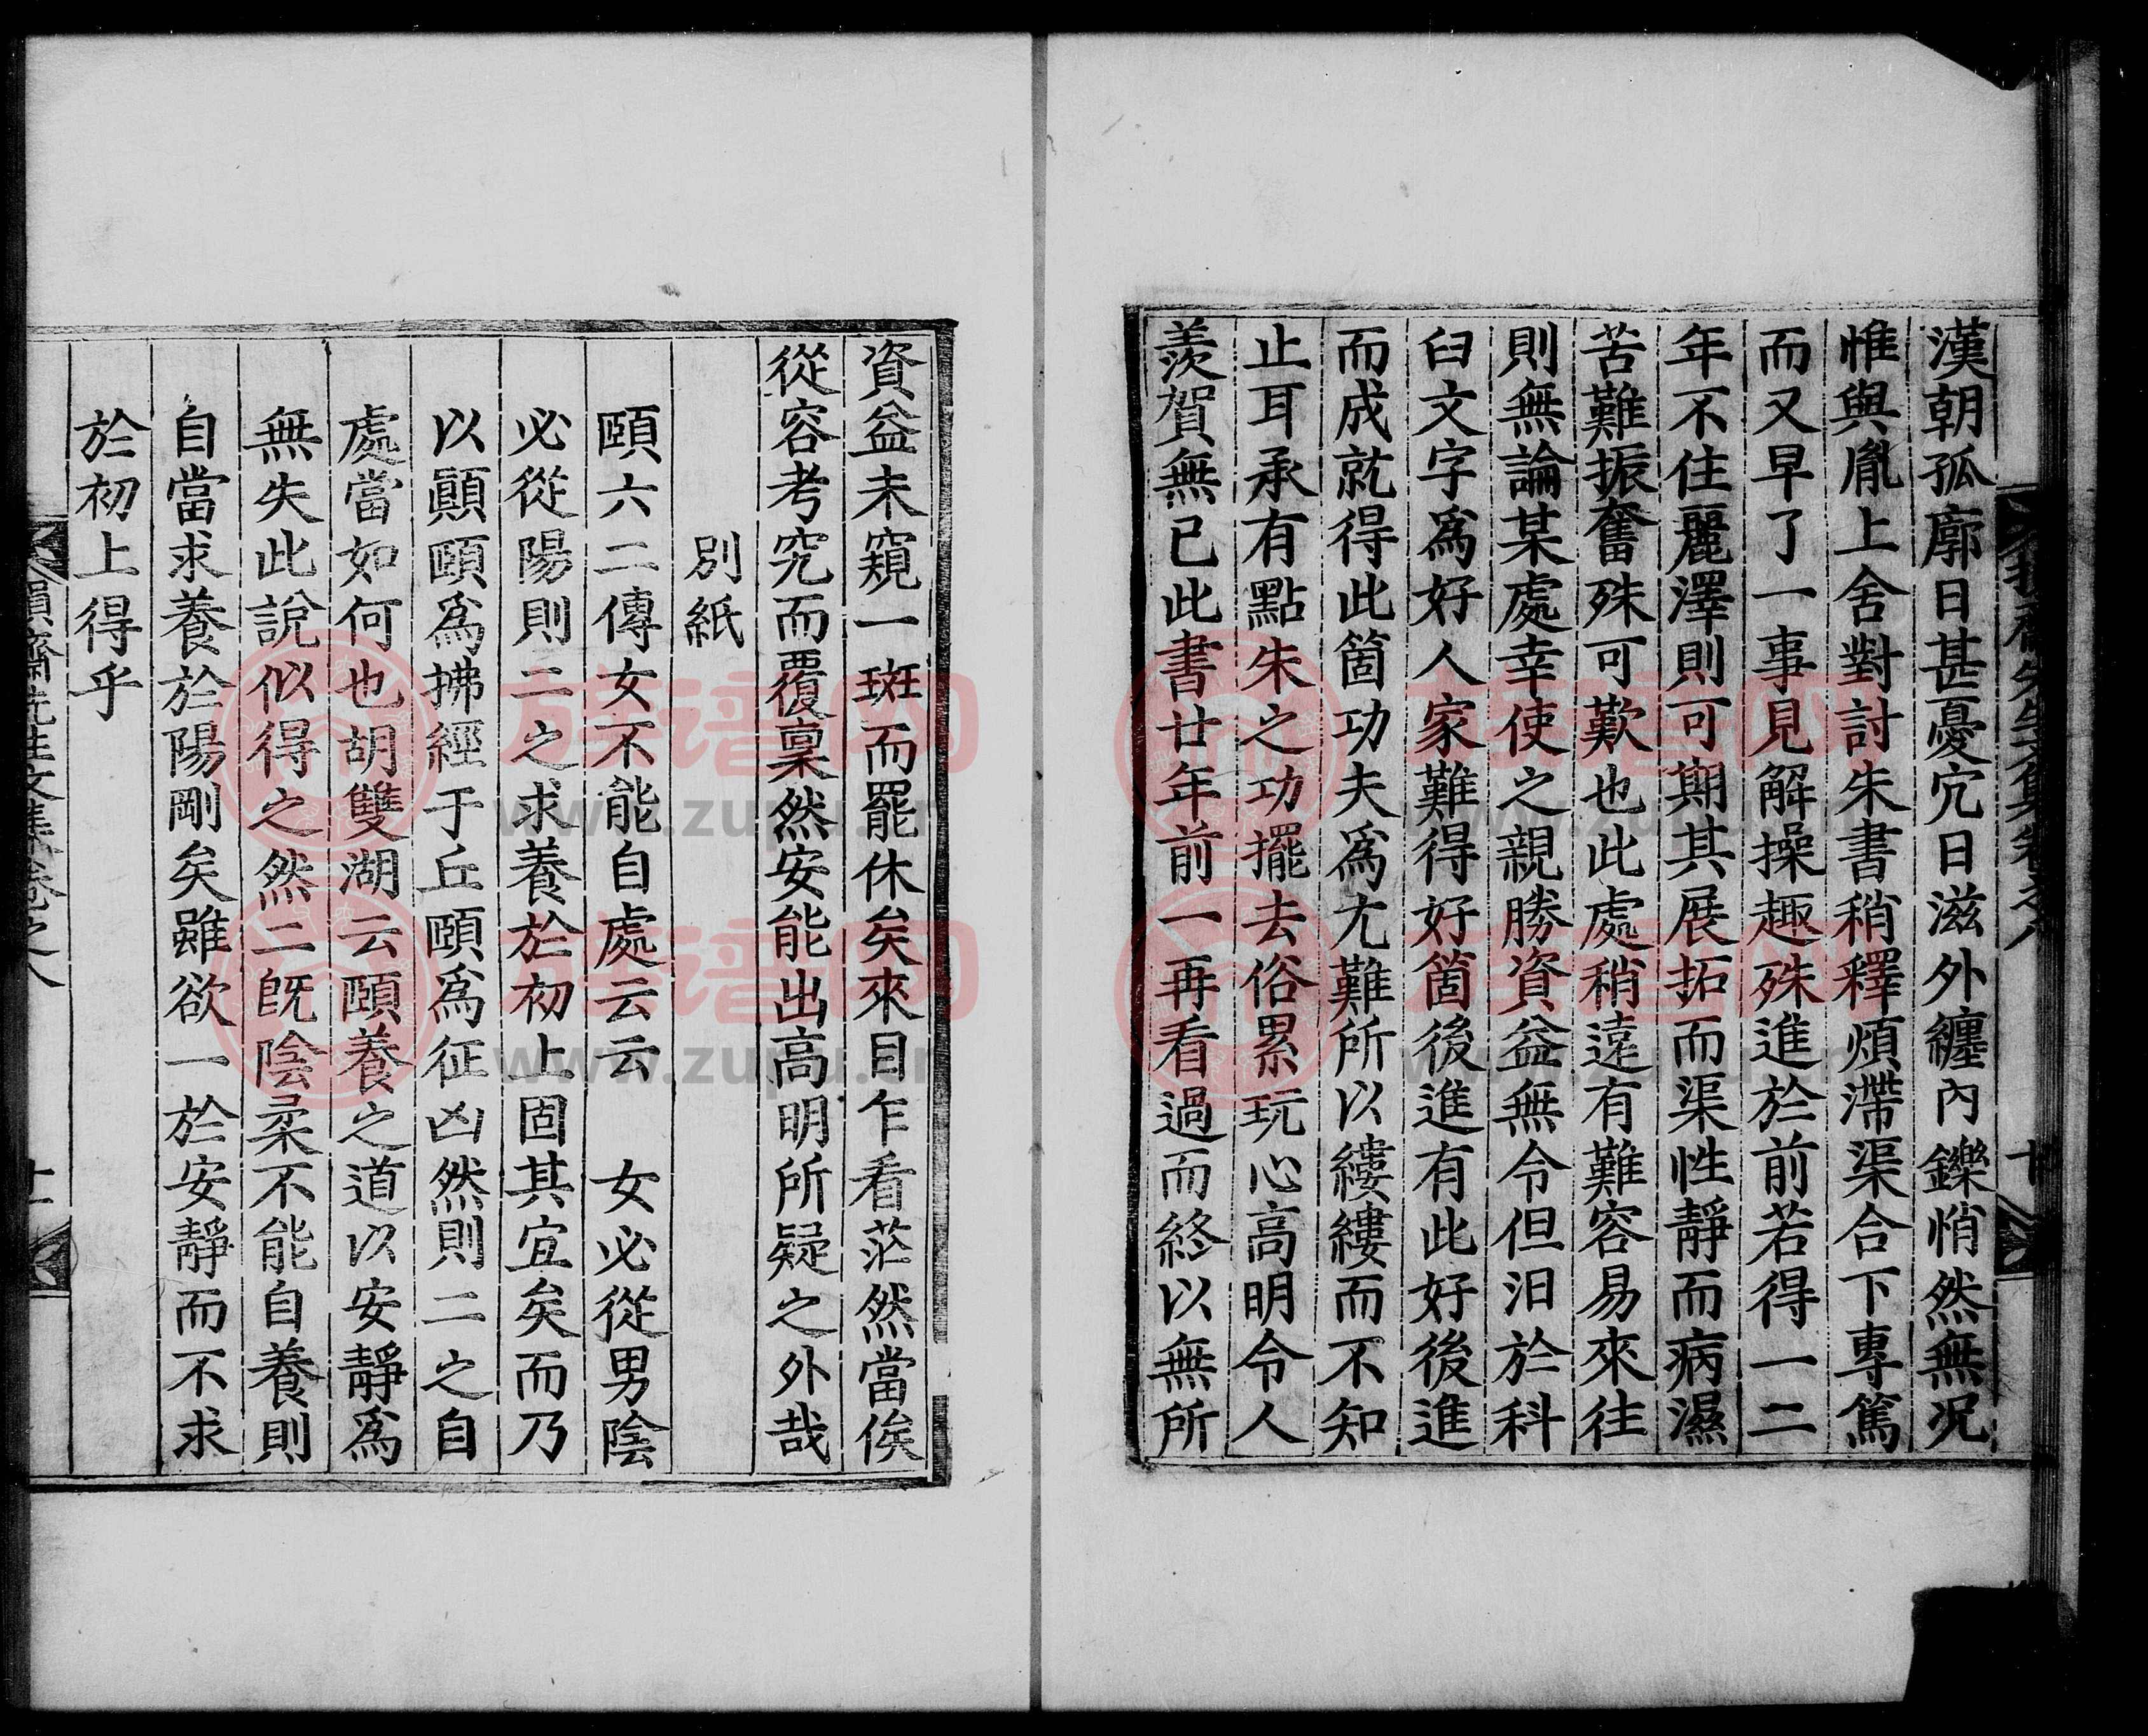 漢朝孤廓日甚憂宂日滋外纏內鑠悄然無况
惟與胤上舍對討朱書稍釋煩滯渠合下專篤
而又早了一事見解操趣殊進於前若得一二
年不住麗澤則可期其展拓而渠性靜而病濕
苦難振奮殊可歎也此處稍遠有難容易來往
則無論某處幸使之親勝資益無令但汨於科
臼文字爲好人家難得好箇後進有此好後進
而成就得此箇功夫爲尤難所以縷縷而不知
止耳承有點朱之功擺去俗累玩心高明令人
羨賀無已此書廿年前一再看過而終以無所
資益未窺一斑而罷休矣來目乍看茫然當俟
從容考究而覆稟然安能出高明所疑之外哉
別紙
頤六二傳女不能自處云云　女必從男陰
必從陽則二之求養於初上固其宜矣而乃
以顚頤爲拂經于丘頤爲征凶然則二之自
處當如何也胡雙湖云頤養之道以安靜爲
無失此說似得之然二旣陰柔不能自養則
自當求養於陽剛矣雖欲一於安靜而不求
於初上得乎
先生文集卷之八
十一
族谱网
www.zupu.cn
族谱网
www.zupu.cn
族谱网
www.zupu.cn
族谱网
www.zupu.cn